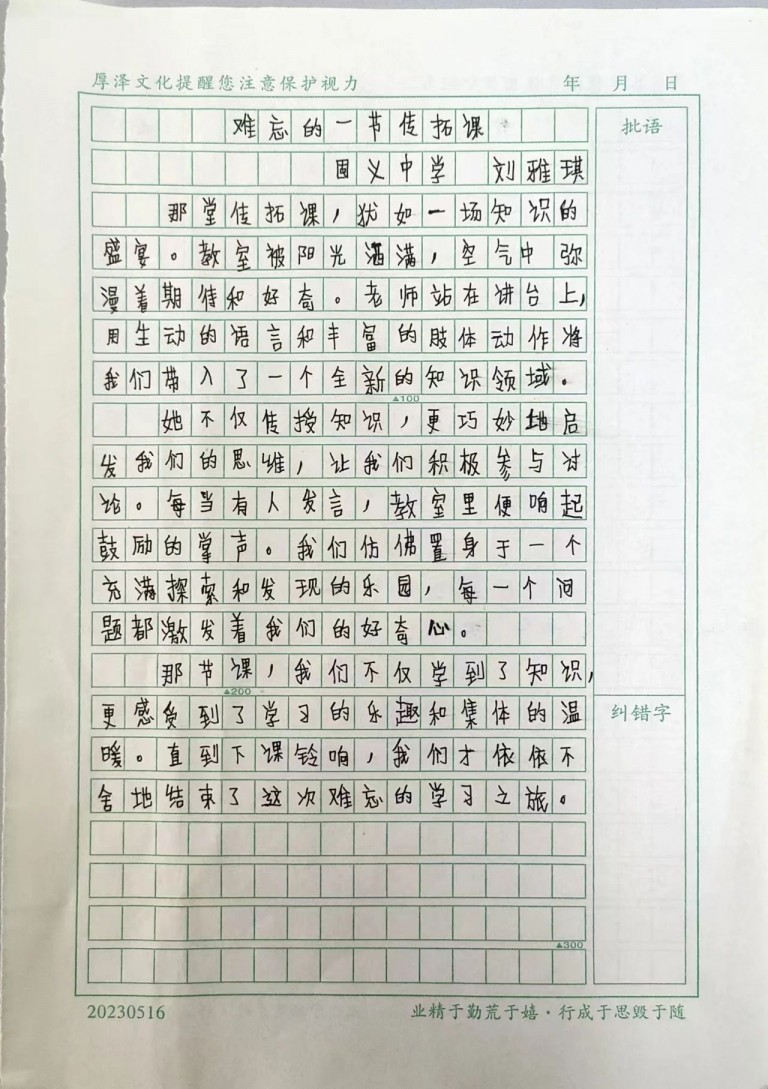 厚泽文化提醒您注意保护视力 年 月 日
难忘的一节传拓课
固义中学 刘雅琪
批语
那堂传拓课，犹如一场知识的
盛宴。教室被阳光洒满，空气中弥
漫着期待和好奇。老师站在讲台上，
用生动的语言和丰富的肢体动作将
我们带入了一个全新的知识领域。
▲100
她不仅传授知识，更巧妙地启
发我们的思维，让我们积极参与讨
论。每当有人发言，教室里便响起
鼓励的掌声。我们仿佛置身于一个
充满探索和发现的乐园，每一个问
题都激发着我们的好奇心。
那节课，我们不仅学到了知识，
▲200
更感受到了学习的乐趣和集体的温
纠错字
暖。直到下课铃响，我们才依依不
舍地结束了这次难忘的学习之旅。
▲300
20230516 业精于勤荒于嬉·行成于思毁于随